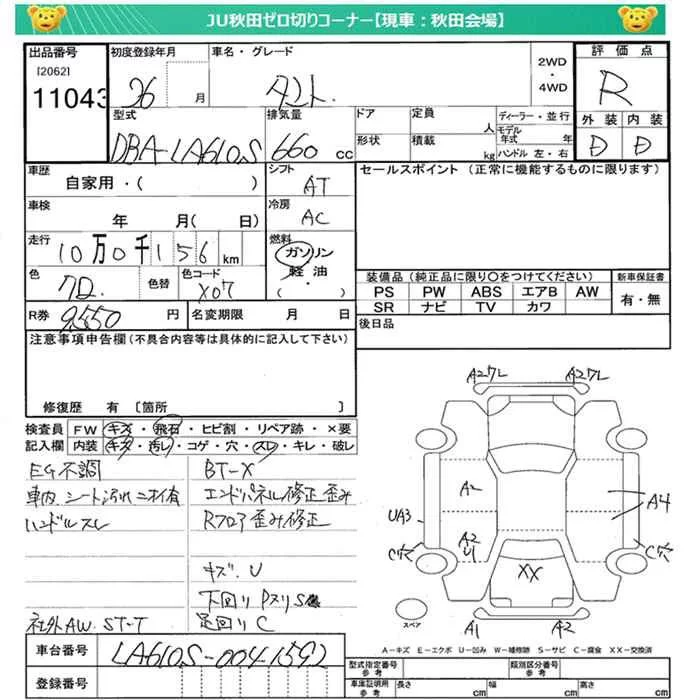 JU秋田ゼロ切りコーナー【現車：秋田会場】
出品番号 初度登録年月 車名・グレード 2WD・4WD 評価点
[2062]
11043 26 月 タント R
型式 排気量 ドア 定員 人 ディーラー・並行 外装 内装
モデル年式 年
DBA-LA610S 660 cc 形状 積載 kg ハンドル 左・右 D D
車歴 シフト セールスポイント（正常に機能するものに限ります）
自家用・( ) AT
車検 冷房
年 月( 日) AC
走行 燃料
10万0千156km ガソリン
色 色替 色コード 軽油・
X07 ( )
装備品（純正品に限り○をつけてください） 新車保証書
PS PW ABS エアB AW 有・無
SR ナビ TV カワ
R券 9550 円 名変期限 月 日 後日品
注意事項申告欄（不具合内容等は具体的に記入して下さい）
修復歴 有 〔箇所 〕
検査員 FW キズ・飛石・ヒビ割・リペア跡・×要
記入欄 内装 キズ・汚レ・コゲ・穴・スレ・キレ・破レ
EG不調 BT-X
車内シート汚れニオイ有 エンドパネル修正歪み
ハンドルスレ Rフロア歪み修正
キズ.U
下回りPスリS
社外AW ST-T 足回りC
A2アL A2アL
A2 A4
UA3 A2 U1
C穴 XX C穴
スペア A1 A2
A－キズ E－エクボ U－凹み W－補修跡 S－サビ C－腐食 XX－交換済
車台番号 LA610S-0041592
登録番号
型式指定番号 参考 類別区分番号 参考
車庫証明用 参考 長さ cm 幅 cm 高さ cm